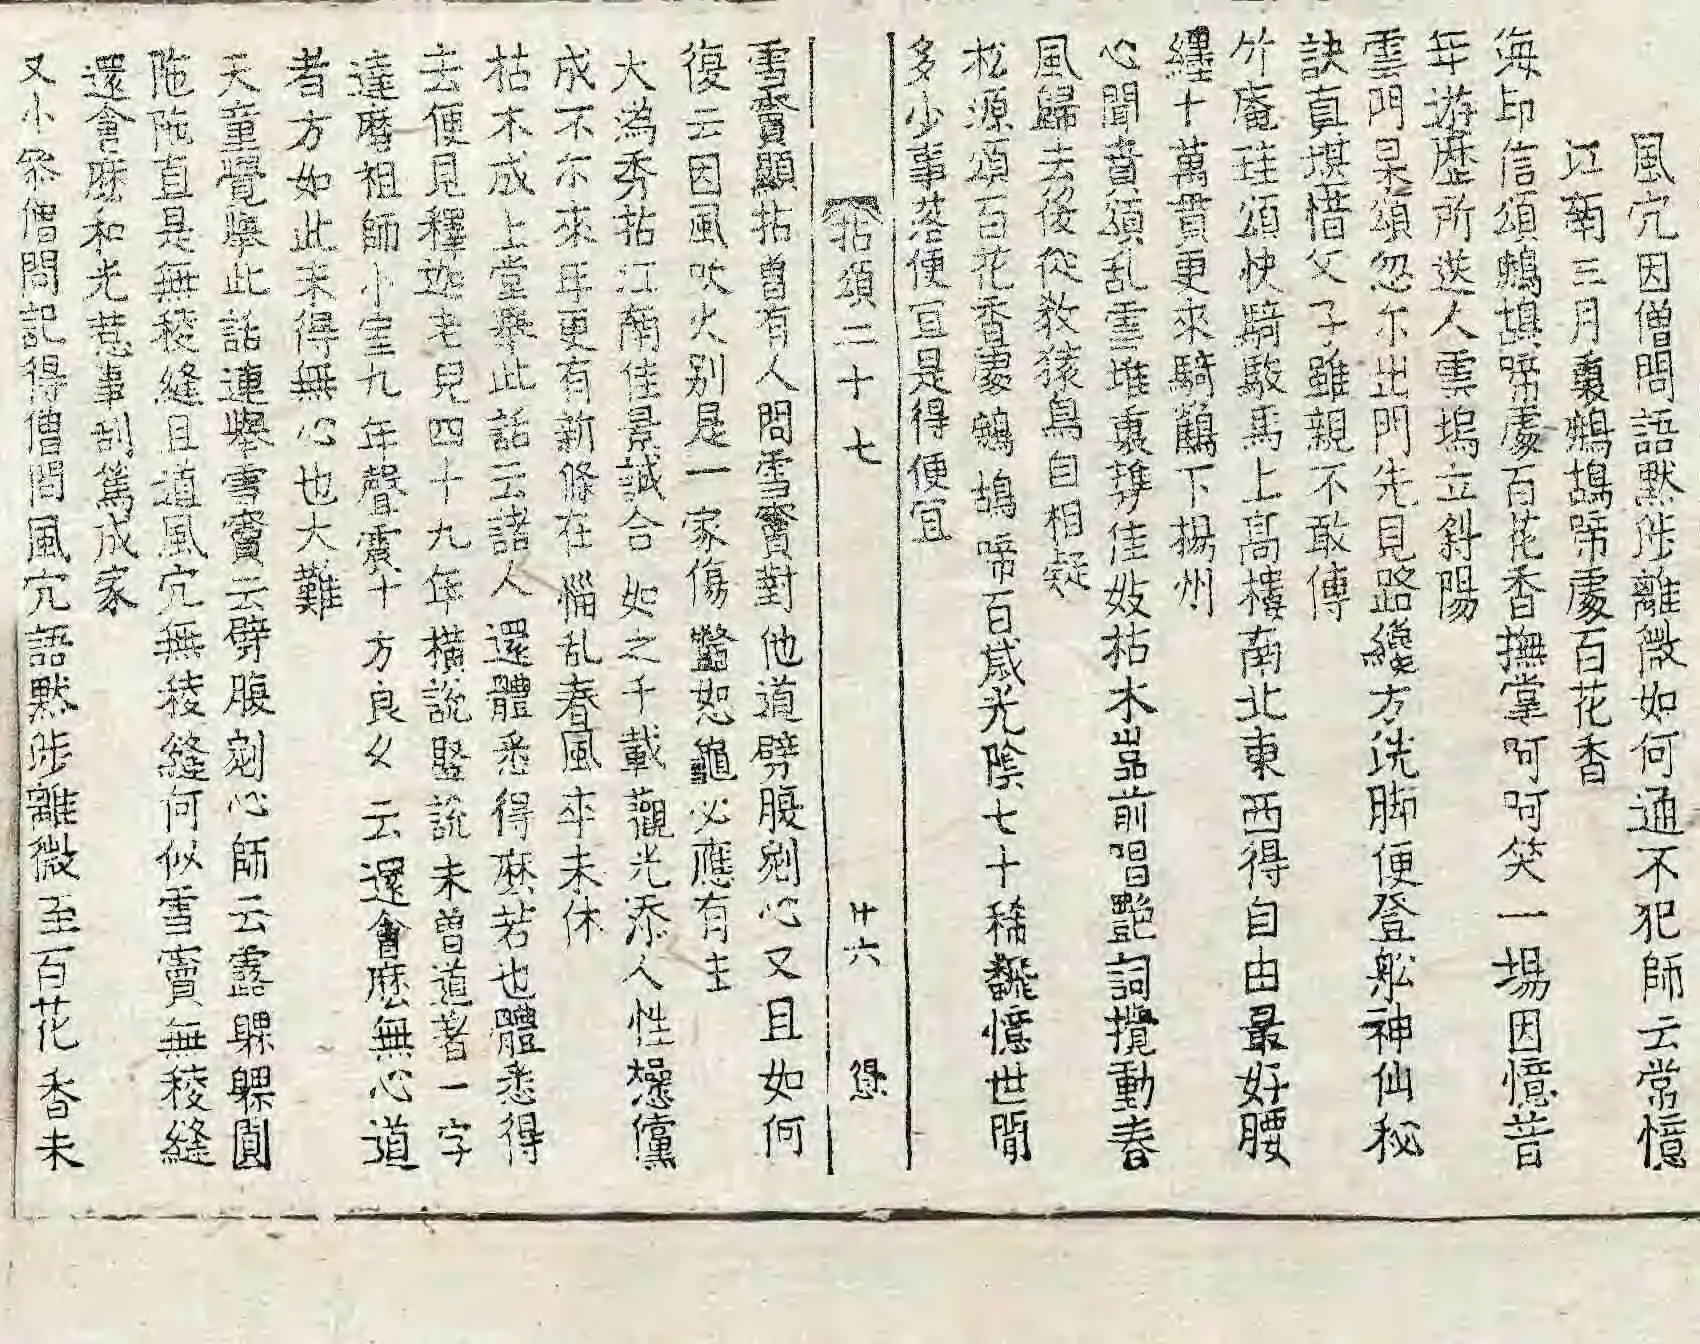 風穴因僧問語默涉離微如何通不犯師云常憶
江南三月裏鷓鴣啼處百花香
海印信頌鷓鴣啼處百花香撫掌呵呵笑一場因憶昔
年遊歷所送人雲塢立斜陽
雲門杲頌忽尔出門先見路纔方洗脚便登舩神仙秘
訣真堪惜父子雖親不敢傳
竹庵珪頌快騎駿馬上高樓南北東西得自由最好腰
纏十萬貫更來騎鶴下揚州
心聞賁頌乱雲堆裏轉佳妓枯木嵓前唱艶詞攪動春
風歸去後從教猿鳥自相疑
松源頌百花香處鷓鴣啼百歲光陰七十稀飜憶世間
多少事落便冝是得便冝
拈頌二十七 廿六
雪竇顯拈曽有人問雪竇對他道劈腹剜心又且如何
復云因風吹火别是一家傷鼈恕龜必應有主
大潙秀拈江南佳景誠合如之千載觀光添人性燥儻
成不尔來年更有新條在惱乱春風卒未休
枯木成上堂擧此話云諸人還體悉得麽若也體悉得
去便見釋迦老兒四十九年橫說竪說未曽道著一字
達磨祖師小室九年聲震十方良久云還會麽無心道
者方如此未得無心也大難
天童覺擧此話連擧雪竇云劈腹剜心師云露躶躶圓
陁陁直是無稜縫且道風穴無稜縫何似雪竇無稜縫
還會麽和光惹事刮篤成家
又小叅僧問記得僧問風穴語默涉離微至百花香未